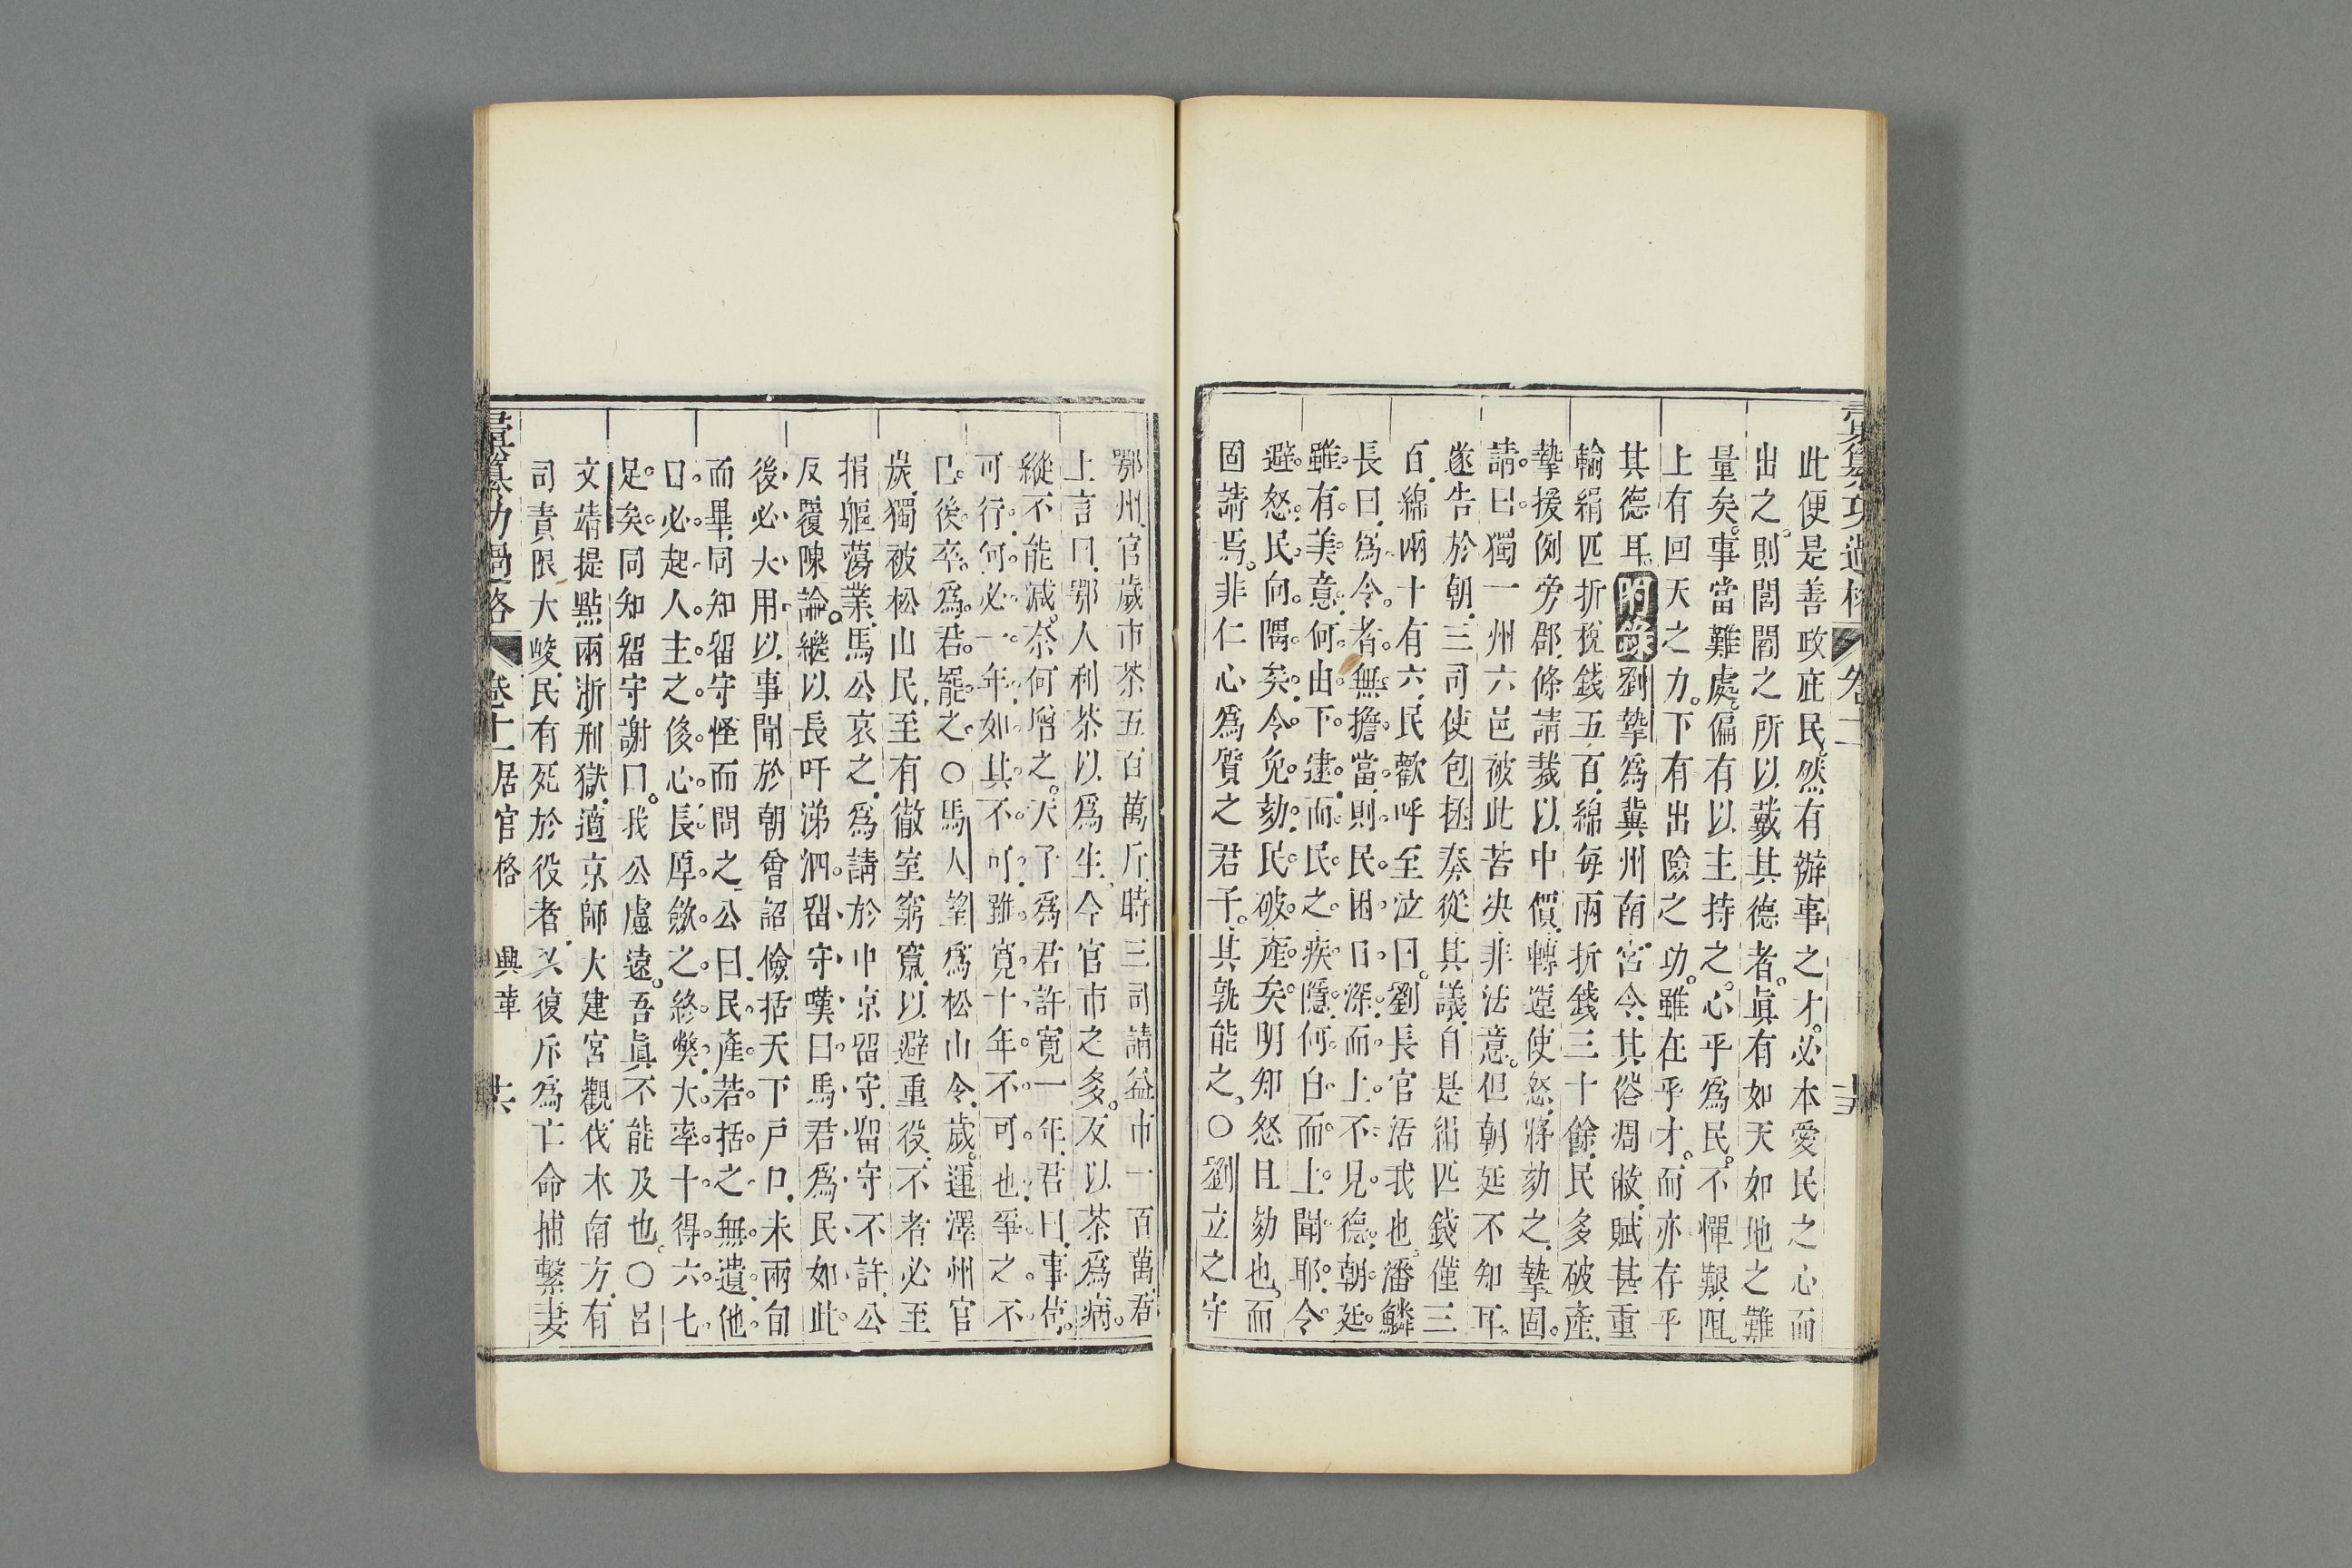 彙纂功過格 卷十一
此便是善政庇民然有辦事之才必本愛民之心而
出之則閭閻之所以戴其德者眞有如天如地之難
量矣事當難處偏有以主持之心乎爲民不憚艱阻
上有回天之力下有出險之功雖在乎才而亦存乎
其德耳附錄劉摯爲冀州南宮令其俗凋敝賦甚重
輸絹匹折稅錢五百綿每兩折錢三十餘民多破產
摯援例旁郡條請裁以中價轉運使怒將劾之摯固
請曰獨一州六邑被此苦决非法意但朝廷不知耳
遂告於朝三司使包拯奏從其議自是絹匹錢僅三
百綿兩十有六民歡呼至泣曰劉長官活我也潘鱗
長曰爲令者無擔當則民困日深而上不見德朝廷
雖有美意何由下逮而民之疾隱何自而上聞耶令
避怒民向隅矣令免劾民破產矣明知怒且劾也而
固請焉非仁心爲質之君子其孰能之○劉立之守
鄂州官歲市茶五百萬斤時三司請益市一百萬君
上言曰鄂人利茶以爲生今官市之多反以茶爲病
縱不能減奈何增之天子爲君許寬一年君曰事苟
可行何必一年如其不可雖寬十年不可也爭之不
已後卒爲君罷之○馬人望爲松山令歲運澤州官
炭獨被松山民至有徹室窮窻以避重役不者必至
捐軀蕩業馬公哀之爲請於中京留守留守不許公
反覆陳論繼以長吁涕泗留守嘆曰馬君爲民如此
後必大用以事聞於朝曾詔儉括天下戶口未兩旬
而畢同知留守怪而問之公曰民產若括之無遺他
日必起人主之後心長厚斂之終弊大率十得六七
足矣同知留守謝曰我公慮遠吾眞不能及也○呂
文靖提點兩浙刑獄適京師大建宮觀伐木南方有
司責限大峻民有死於役者又復斥爲亡命捕繫妻
彙纂功過格 卷十一 居官格 興革